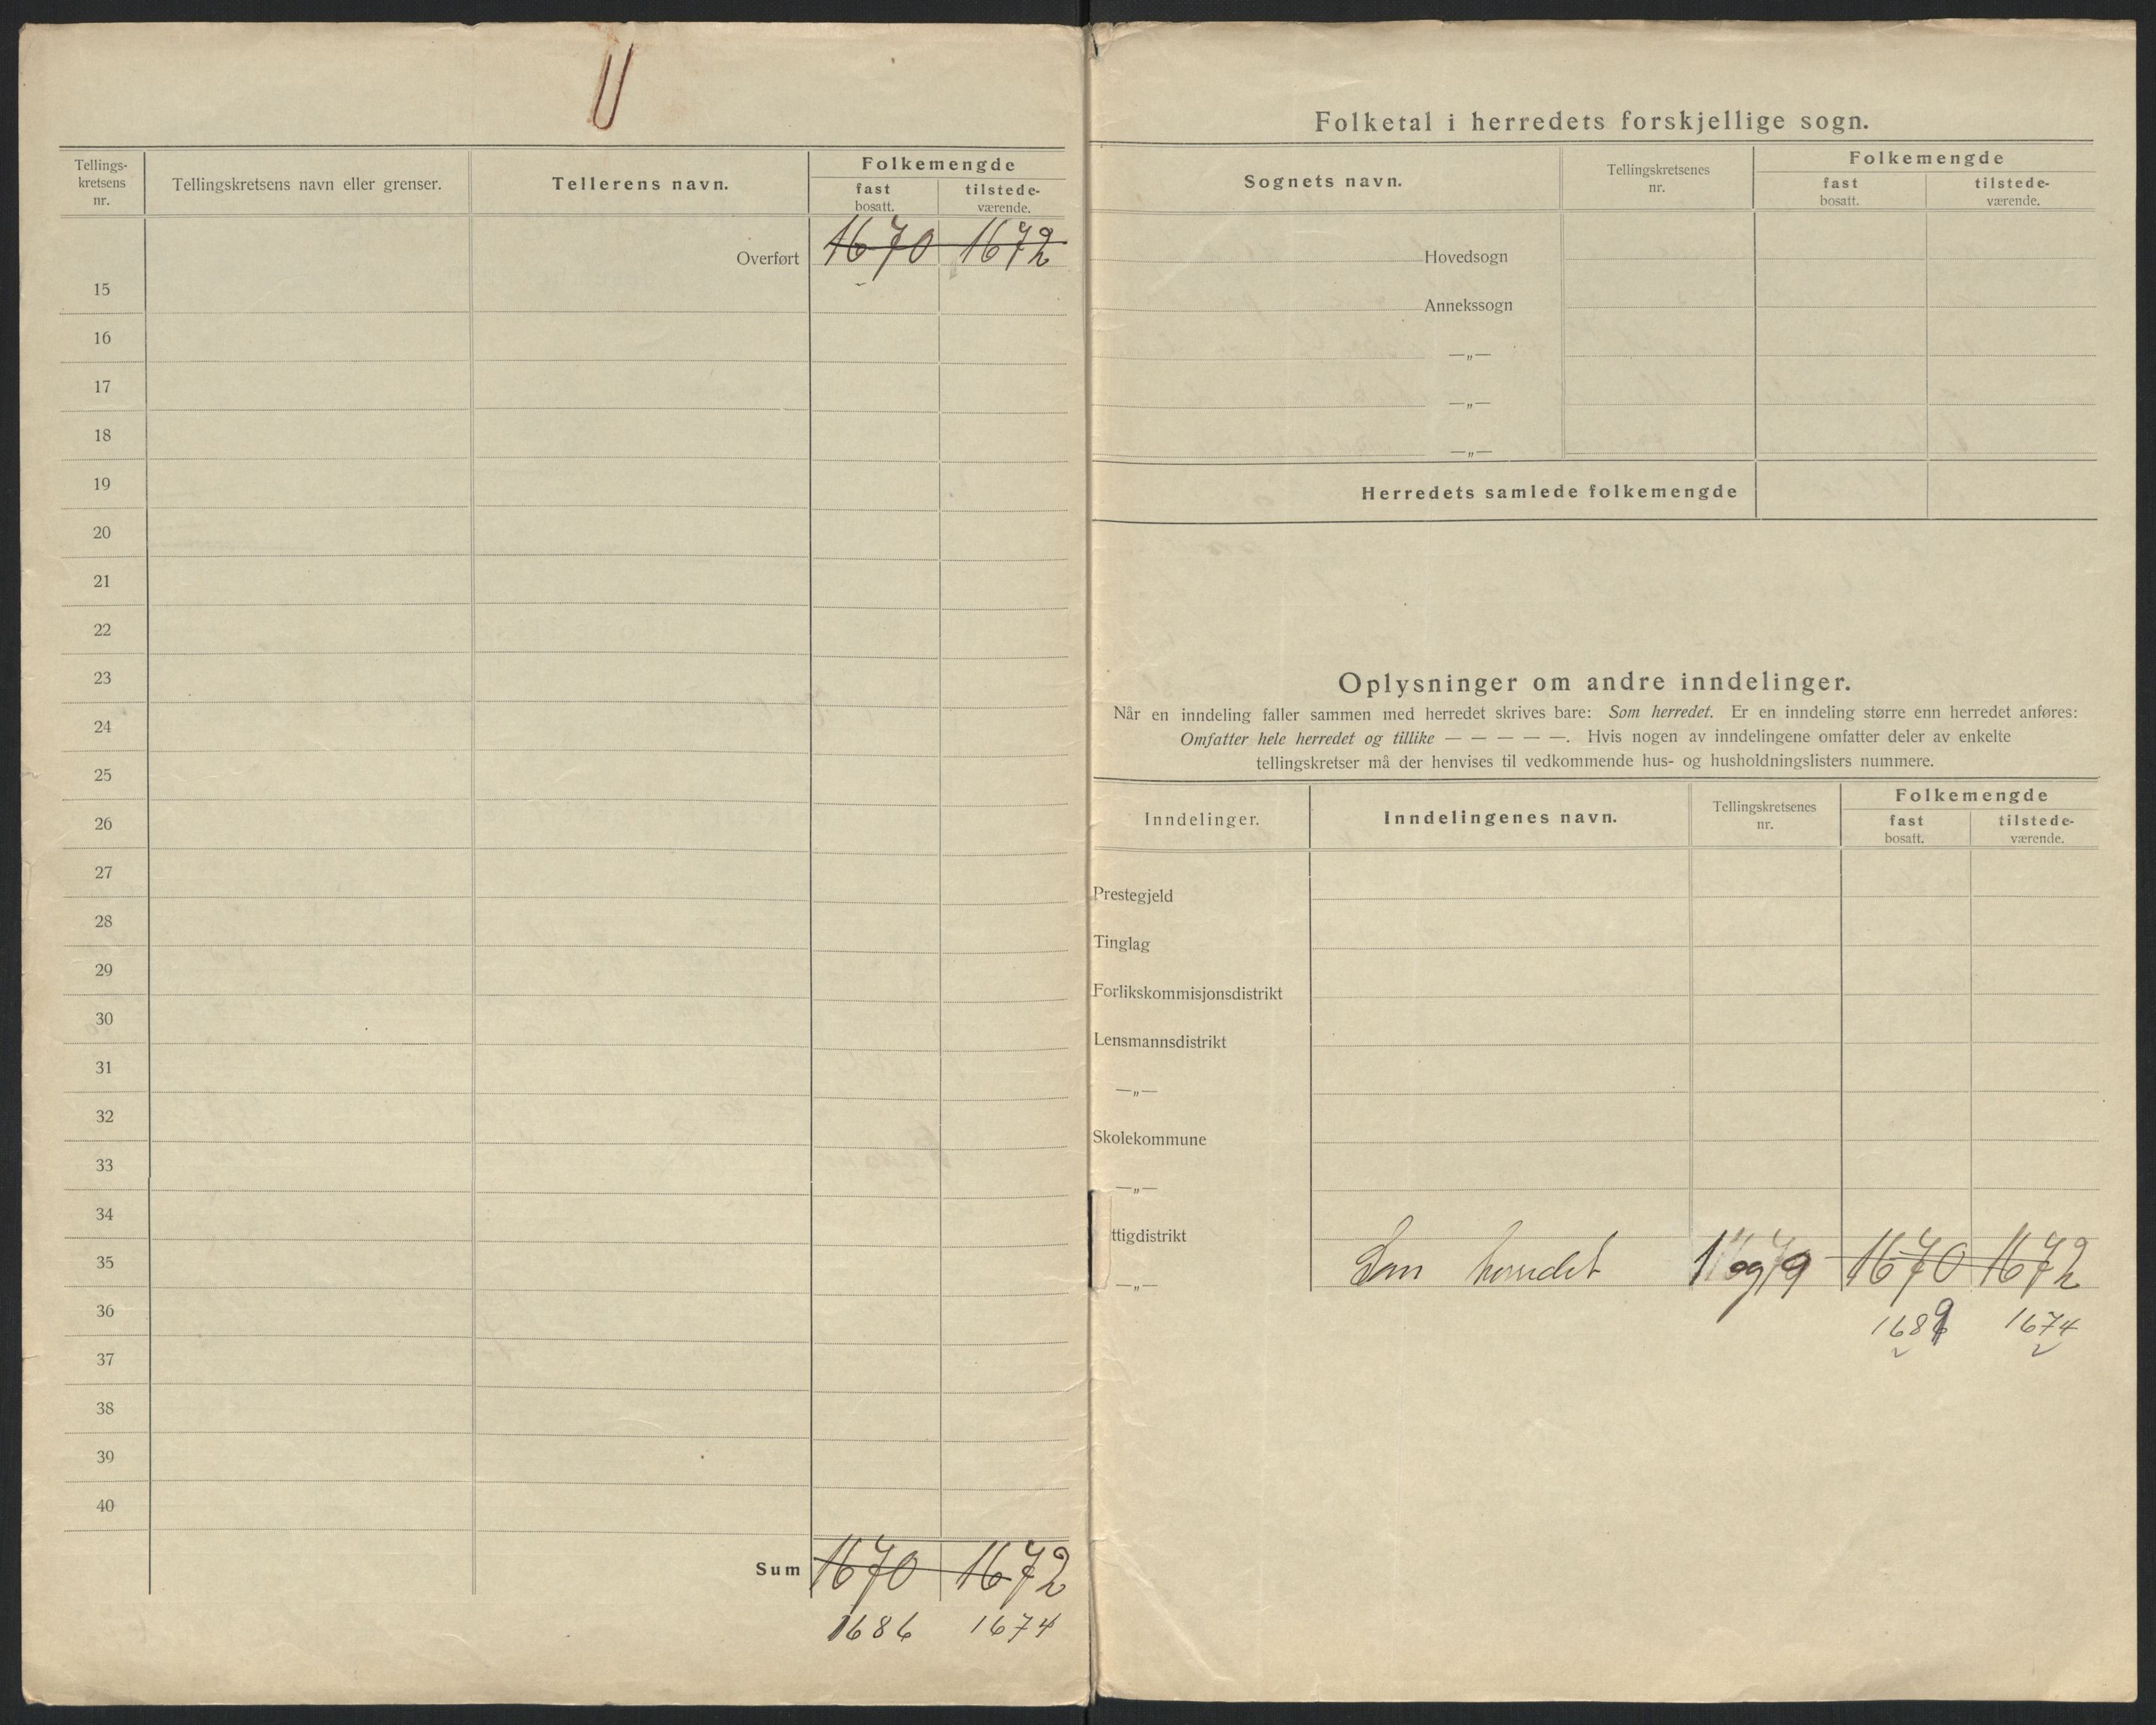 Tellings-
kretsens
nr.
Tellingskretsens navn eller grenser.
Tellerens navn.
Folkemengde
fast
bosatt.
tilstede-
værende.
Overført 1670 1672
15
16
17
18
19
20
21
22
23
24
25
26
27
28
29
30
31
32
33
34
35
36
37
38
39
40
Sum 1670 1672
1686 1674
Folketal i herredets forskjellige sogn.
Sognets navn.
Tellingskretsenes
nr.
Folkemengde
fast
bosatt.
tilstede-
værende.
Hovedsogn
Annekssogn
—„—
—„—
—„—
Herredets samlede folkemengde
Oplysninger om andre inndelinger.
Når en inndeling faller sammen med herredet skrives bare: Som herredet. Er en inndeling større enn herredet anføres:
Omfatter hele herredet og tillike — — — — —. Hvis nogen av inndelingene omfatter deler av enkelte
tellingskretser må der henvises til vedkommende hus- og husholdningslisters nummere.
Inndelinger.
Inndelingenes navn.
Tellingskretsenes
nr.
Folkemengde
fast
bosatt.
tilstede-
værende.
Prestegjeld
Tinglag
Forlikskommisjonsdistrikt
Lensmannsdistrikt
—„—
Skolekommune
—„—
ttigdistrikt
—„— Som herredet 1670 1672
1674